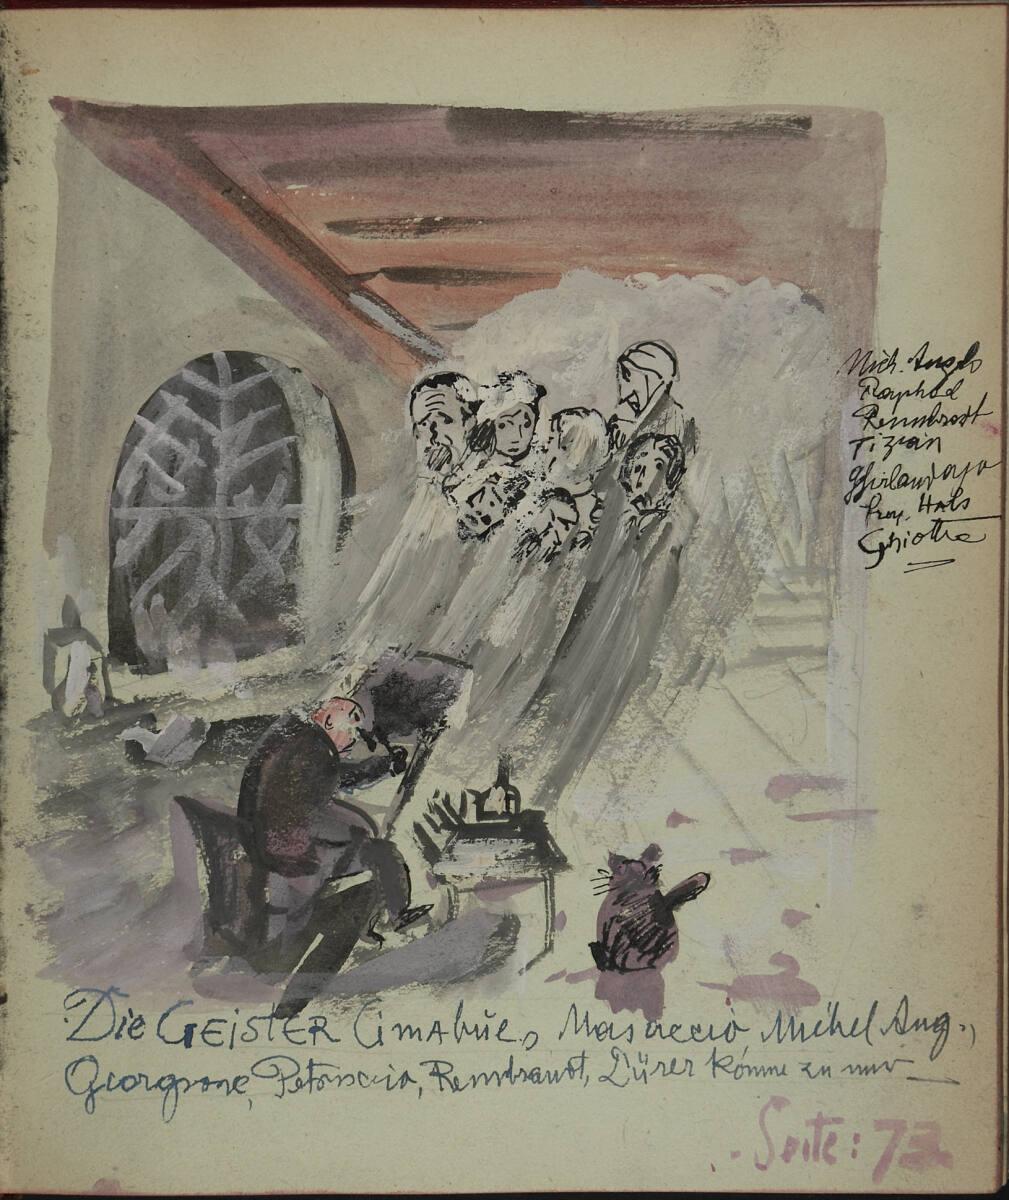 Mich. Angelo
Raphael
Rembrandt
Tizian
Ghirlandajo
Franz. Hals
Ghiotto
Die GEISTER Cimabue, Masaccio, Michel Ang.,
Giorgione, Rembrandt, Dürer komme zu mir
Seite: 73